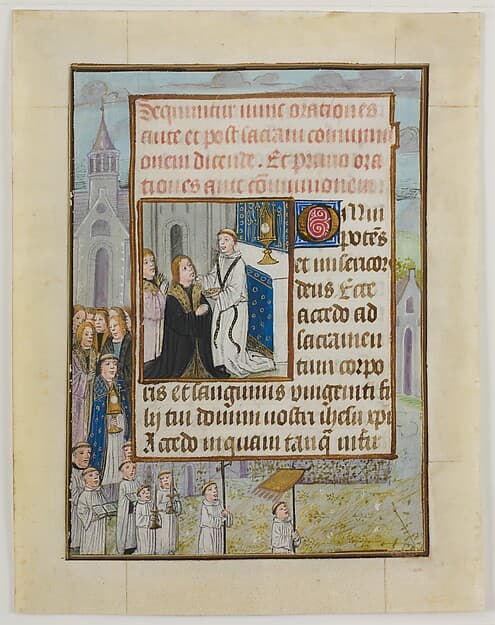 Sequuntur nunc orationes
ante et post sacram commun
onem dicende. Et primo ora
tiones ante cōmunionem
Omni
potēs
et misericor
deus. Ecce
accedo ad
sacramen
tum corpo
ris et sanguinis vnigeniti fi
lij tui domini nostri ihesu xpi
Accedo inquam tanq̄ infir